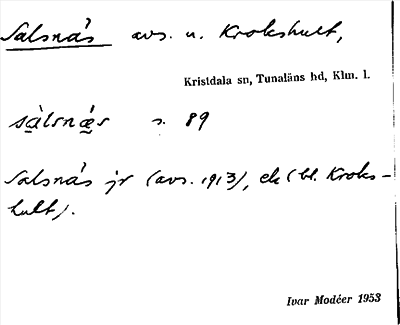 Salsnäs avs. u. Krokshult,
Kristdala sn, Tunaläns hd, Klm. l.
sàlsnæ̀s s. 89
Salsnäs jr (avs. 1913), ek (bl. Kroks-
hult).
Ivar Modéer 1953